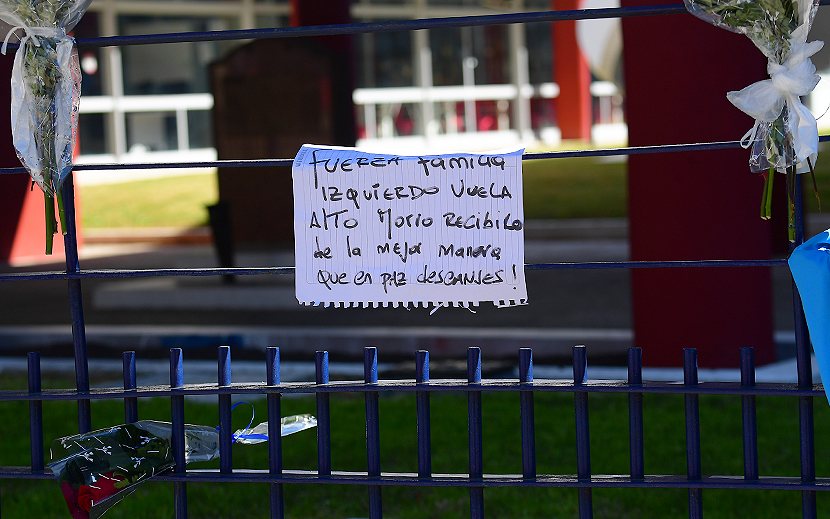 FUERZA FAMILIA
IZQUIERDO VUELA
ALTO MORRO RECIBILO
de la MEJOR MANERA
QUE EN PAZ DESCANSES!